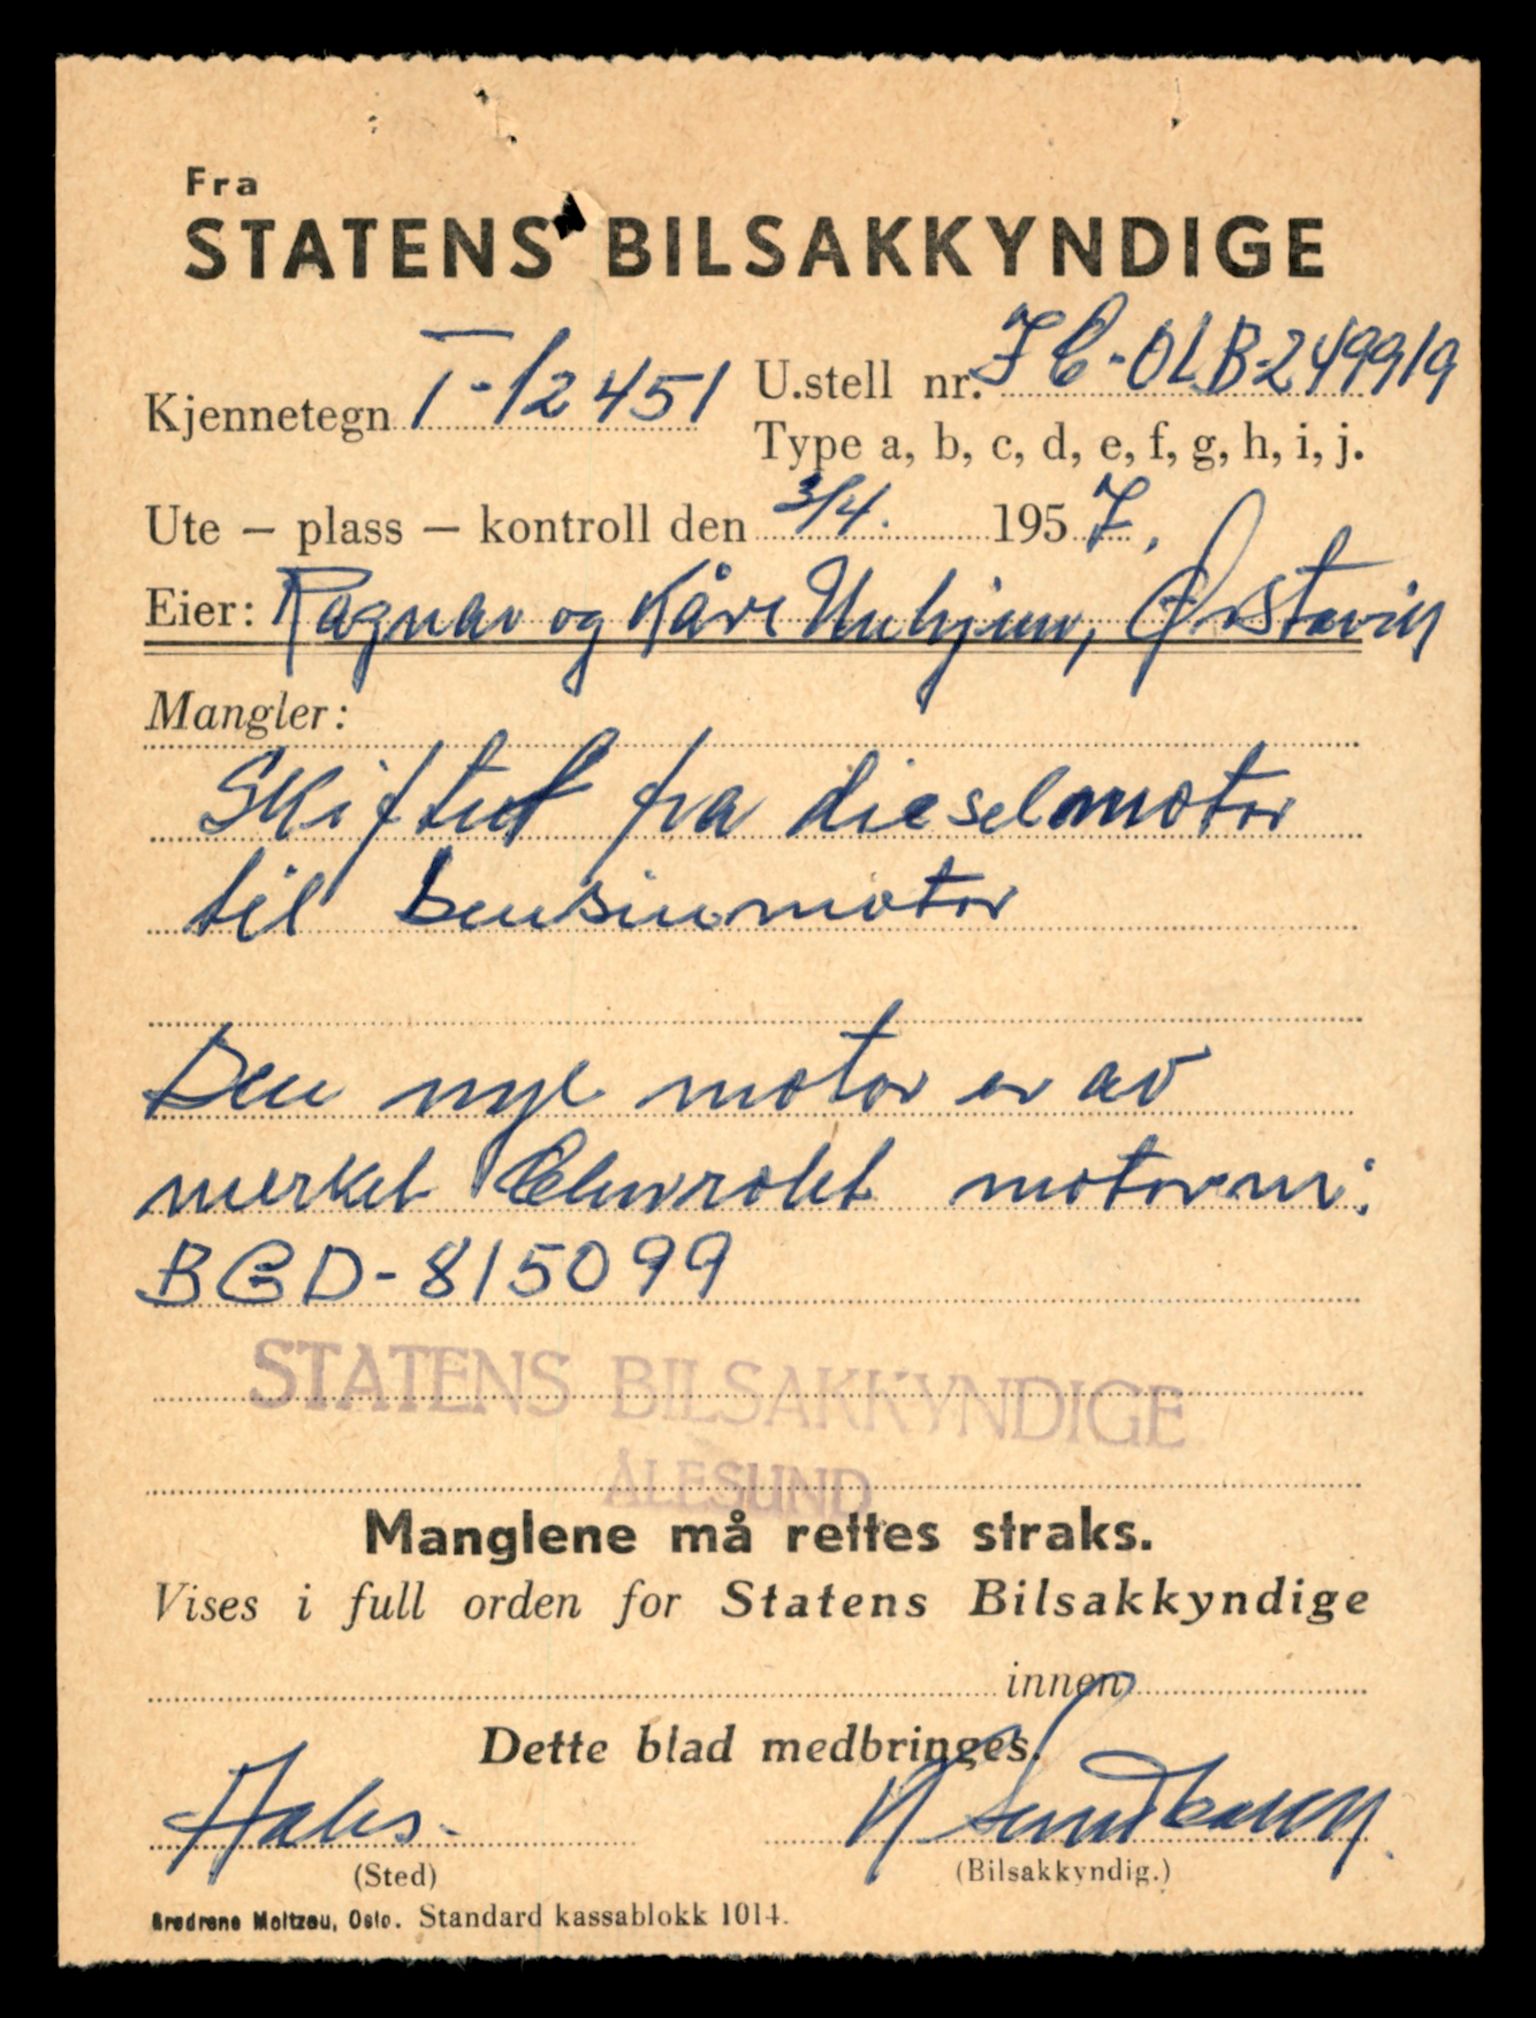 Fra
STATENS BILSAKKYNDIGE
Kjennetegn T-12451 U.stell nr. JC-OLB-249919
Type a, b, c, d, e, f, g, h, i, j.
Ute – plass – kontroll den 3/4. 1957.
Eier: Ragnar og Kåre Unhjem, Ørstavik
Mangler:
Skiftet fra dieselmotor
til bensinmotor
Den nye motor er av
merket Chevrolet motornr:
BGD-815099
STATENS BILSAKKYNDIGE
ÅLESUND
Manglene må rettes straks.
Vises i full orden for Statens Bilsakkyndige
innen
Dette blad medbringes.
(Sted) (Bilsakkyndig.)
Brødrene Moltzau, Oslo. Standard kassablokk 1014.